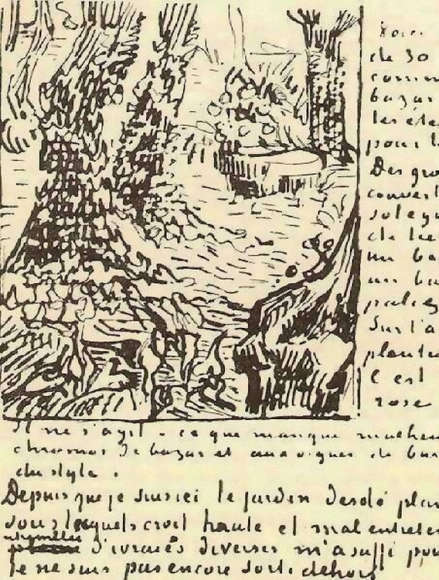 Voici
de 30
comm
bazar
les éte
pour l
Des gro
couvert
sol ey
de lie
un ba
un ba
pales
Sur l'a
plante
C est
rose
Il ne s'agit ce que manque malheu
chromos de bazar et aux orgues de bar
du style.
Depuis que je suis ici le jardin desolé plan
sous lesquels croit haute et mal entreten
d'ivraies diverses m'a suffi pour
je ne suis pas encore sorti dehors